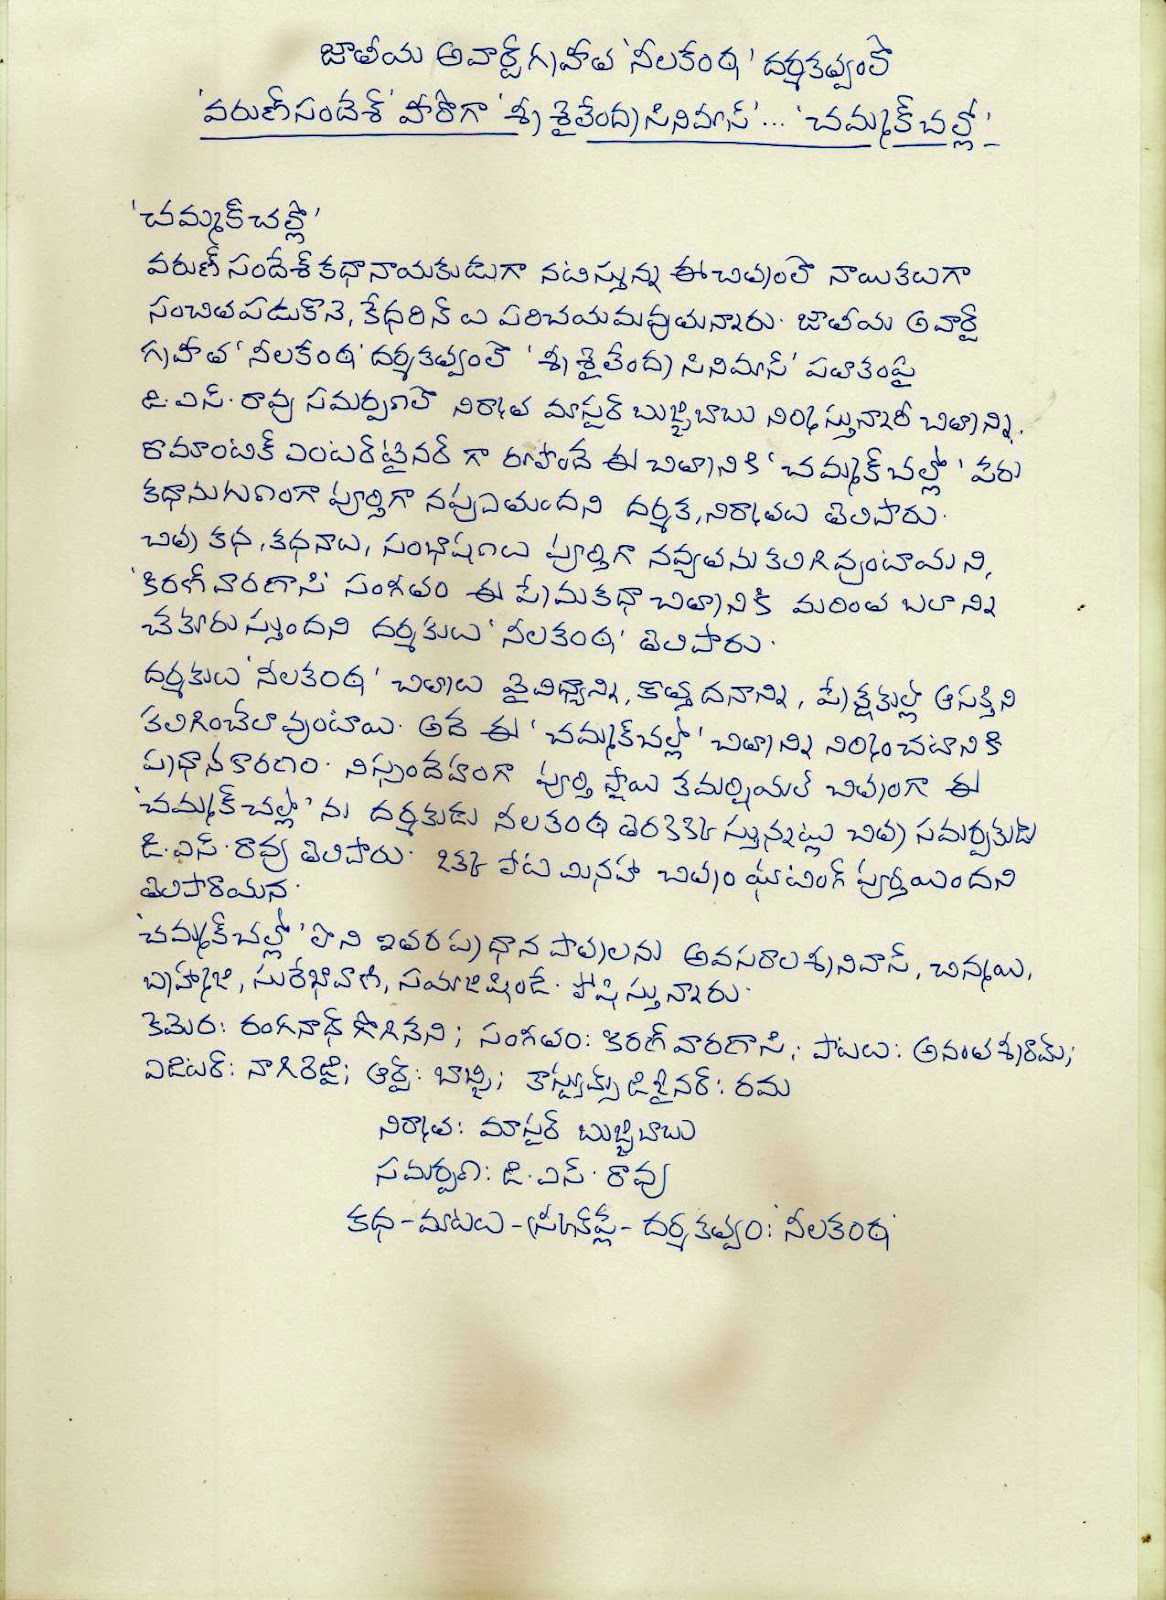 జాతీయ అవార్డ్ గ్రహీత 'నీలకంఠ' దర్శకత్వంలో
'వరుణ్ సందేశ్' హీరోగా 'శ్రీ శైలేంద్ర సినిమాస్'... 'చమ్మక్ చల్లో'
'చమ్మక్ చల్లో'
వరుణ్ సందేశ్ కథానాయకుడుగా నటిస్తున్న ఈ చిత్రంలో నాయికలుగా
సంచితపడుకొనె, కేథరిన్ లు పరిచయమవుతున్నారు. జాతీయ అవార్డ్
గ్రహీత 'నీలకంఠ' దర్శకత్వంలో 'శ్రీ శైలేంద్ర సినిమాస్' పతాకంపై
డి.ఎస్. రావు సమర్పణలో నిర్మాత మాస్టర్ బుజ్జిబాబు నిర్మిస్తున్నారీ చిత్రాన్ని.
రొమాంటిక్ ఎంటర్ టైనర్ గా రూపొందే ఈ చిత్రానికి 'చమ్మక్ చల్లో' పేరు
కథానుగుణంగా పూర్తిగా నప్పుతుందని దర్శక, నిర్మాతలు తెలిపారు.
చిత్ర కథ, కథనాలు, సంభాషణలు పూర్తిగా నవ్యతను కలిగివుంటాయని,
'కిరణ్ వారణాసి' సంగీతం ఈ ప్రేమకథా చిత్రానికి మరింత బలాన్ని
చేకూరుస్తుందని దర్శకులు 'నీలకంఠ' తెలిపారు.
దర్శకులు 'నీలకంఠ' చిత్రాలు వైవిధ్యాన్ని, కొత్తదనాన్ని, ప్రేక్షకుల్లో ఆసక్తిని
కలిగించేలా వుంటాయి. అదే ఈ 'చమ్మక్ చల్లో' చిత్రాన్ని నిర్మించటానికి
ప్రధానకారణం. నిస్సందేహంగా పూర్తి స్థాయి కమర్షియల్ చిత్రంగా ఈ
'చమ్మక్ చల్లో' ను దర్శకుడు నీలకంఠ తెరకెక్కిస్తున్నట్లు చిత్ర సమర్పకుడు
డి.ఎస్. రావు తెలిపారు. ఒక్క పాట మినహా చిత్రం షూటింగ్ పూర్తయిందని
తెలిపారాయన.
'చమ్మక్ చల్లో' లోని ఇతర ప్రధాన పాత్రలను అవసరాల శ్రీనివాస్, చిన్మయి,
బ్రహ్మాజి, సురేఖావాణి, సయాజిషిండే. పోషిస్తున్నారు.
కెమెరా: రంగనాథ్ గోగినేని; సంగీతం: కిరణ్ వారణాసి; పాటలు: అనంతశ్రీరామ్;
ఎడిటర్: నాగిరెడ్డి; ఆర్ట్: బాబ్జి; కాస్ట్యూమ్స్ డిజైనర్: రమ
నిర్మాత: మాస్టర్ బుజ్జిబాబు
సమర్పణ: డి.ఎస్. రావు
కథ-మాటలు-స్క్రీన్ ప్లే-దర్శకత్వం: 'నీలకంఠ'